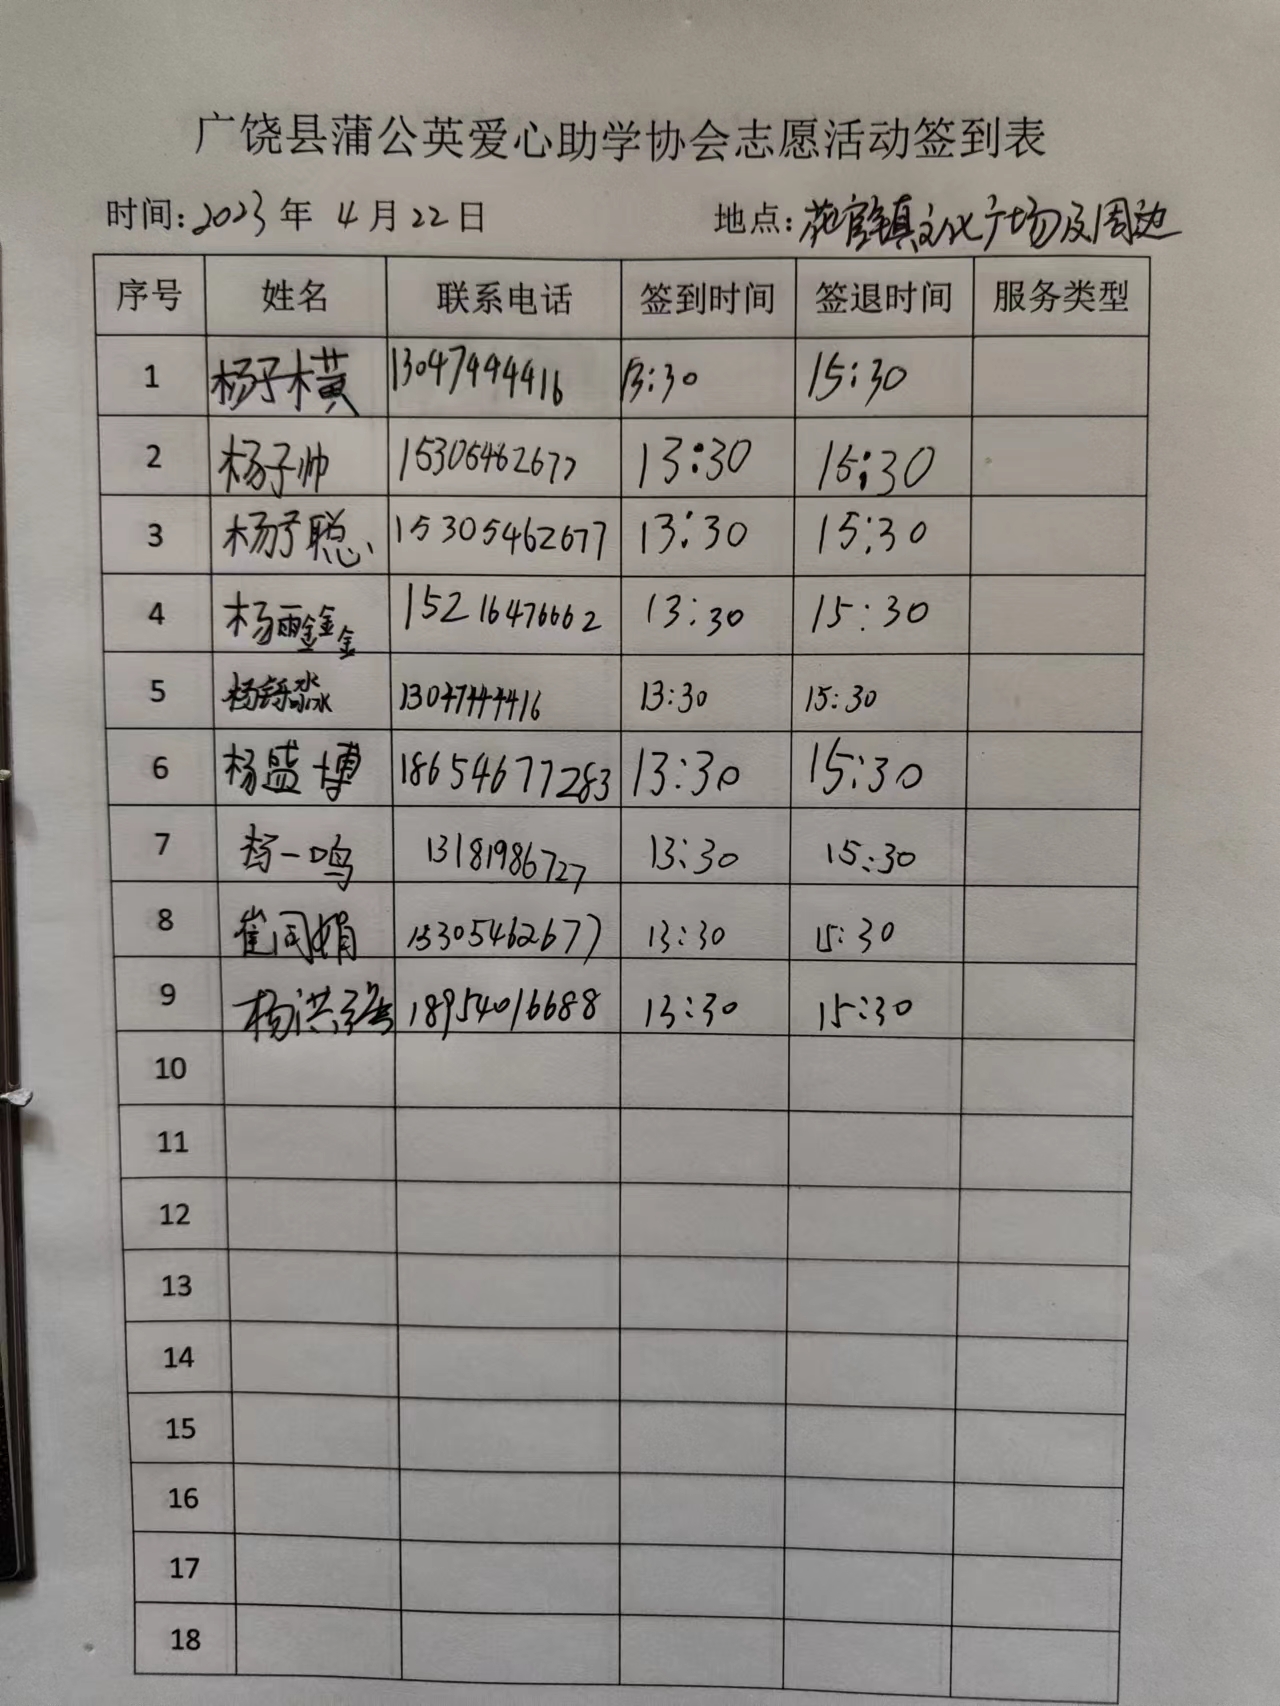 广饶县蒲公英爱心助学协会志愿活动签到表
时间: 2023 年 4 月 22 日 地点: 花官镇文化广场及周边
序号 姓名 联系电话 签到时间 签退时间 服务类型
1 杨子横 13047444416 13:30 15:30
2 杨子帅 15305462677 13:30 15:30
3 杨子聪 15305462677 13:30 15:30
4 杨 15216476662 13:30 15:30
5 杨 13047444416 13:30 15:30
6 杨盛博 18654677283 13:30 15:30
7 杨一鸣 13181986727 13:30 15:30
8 崔同娟 15305462677 13:30 15:30
9 杨洪 18954016688 13:30 15:30
10
11
12
13
14
15
16
17
18